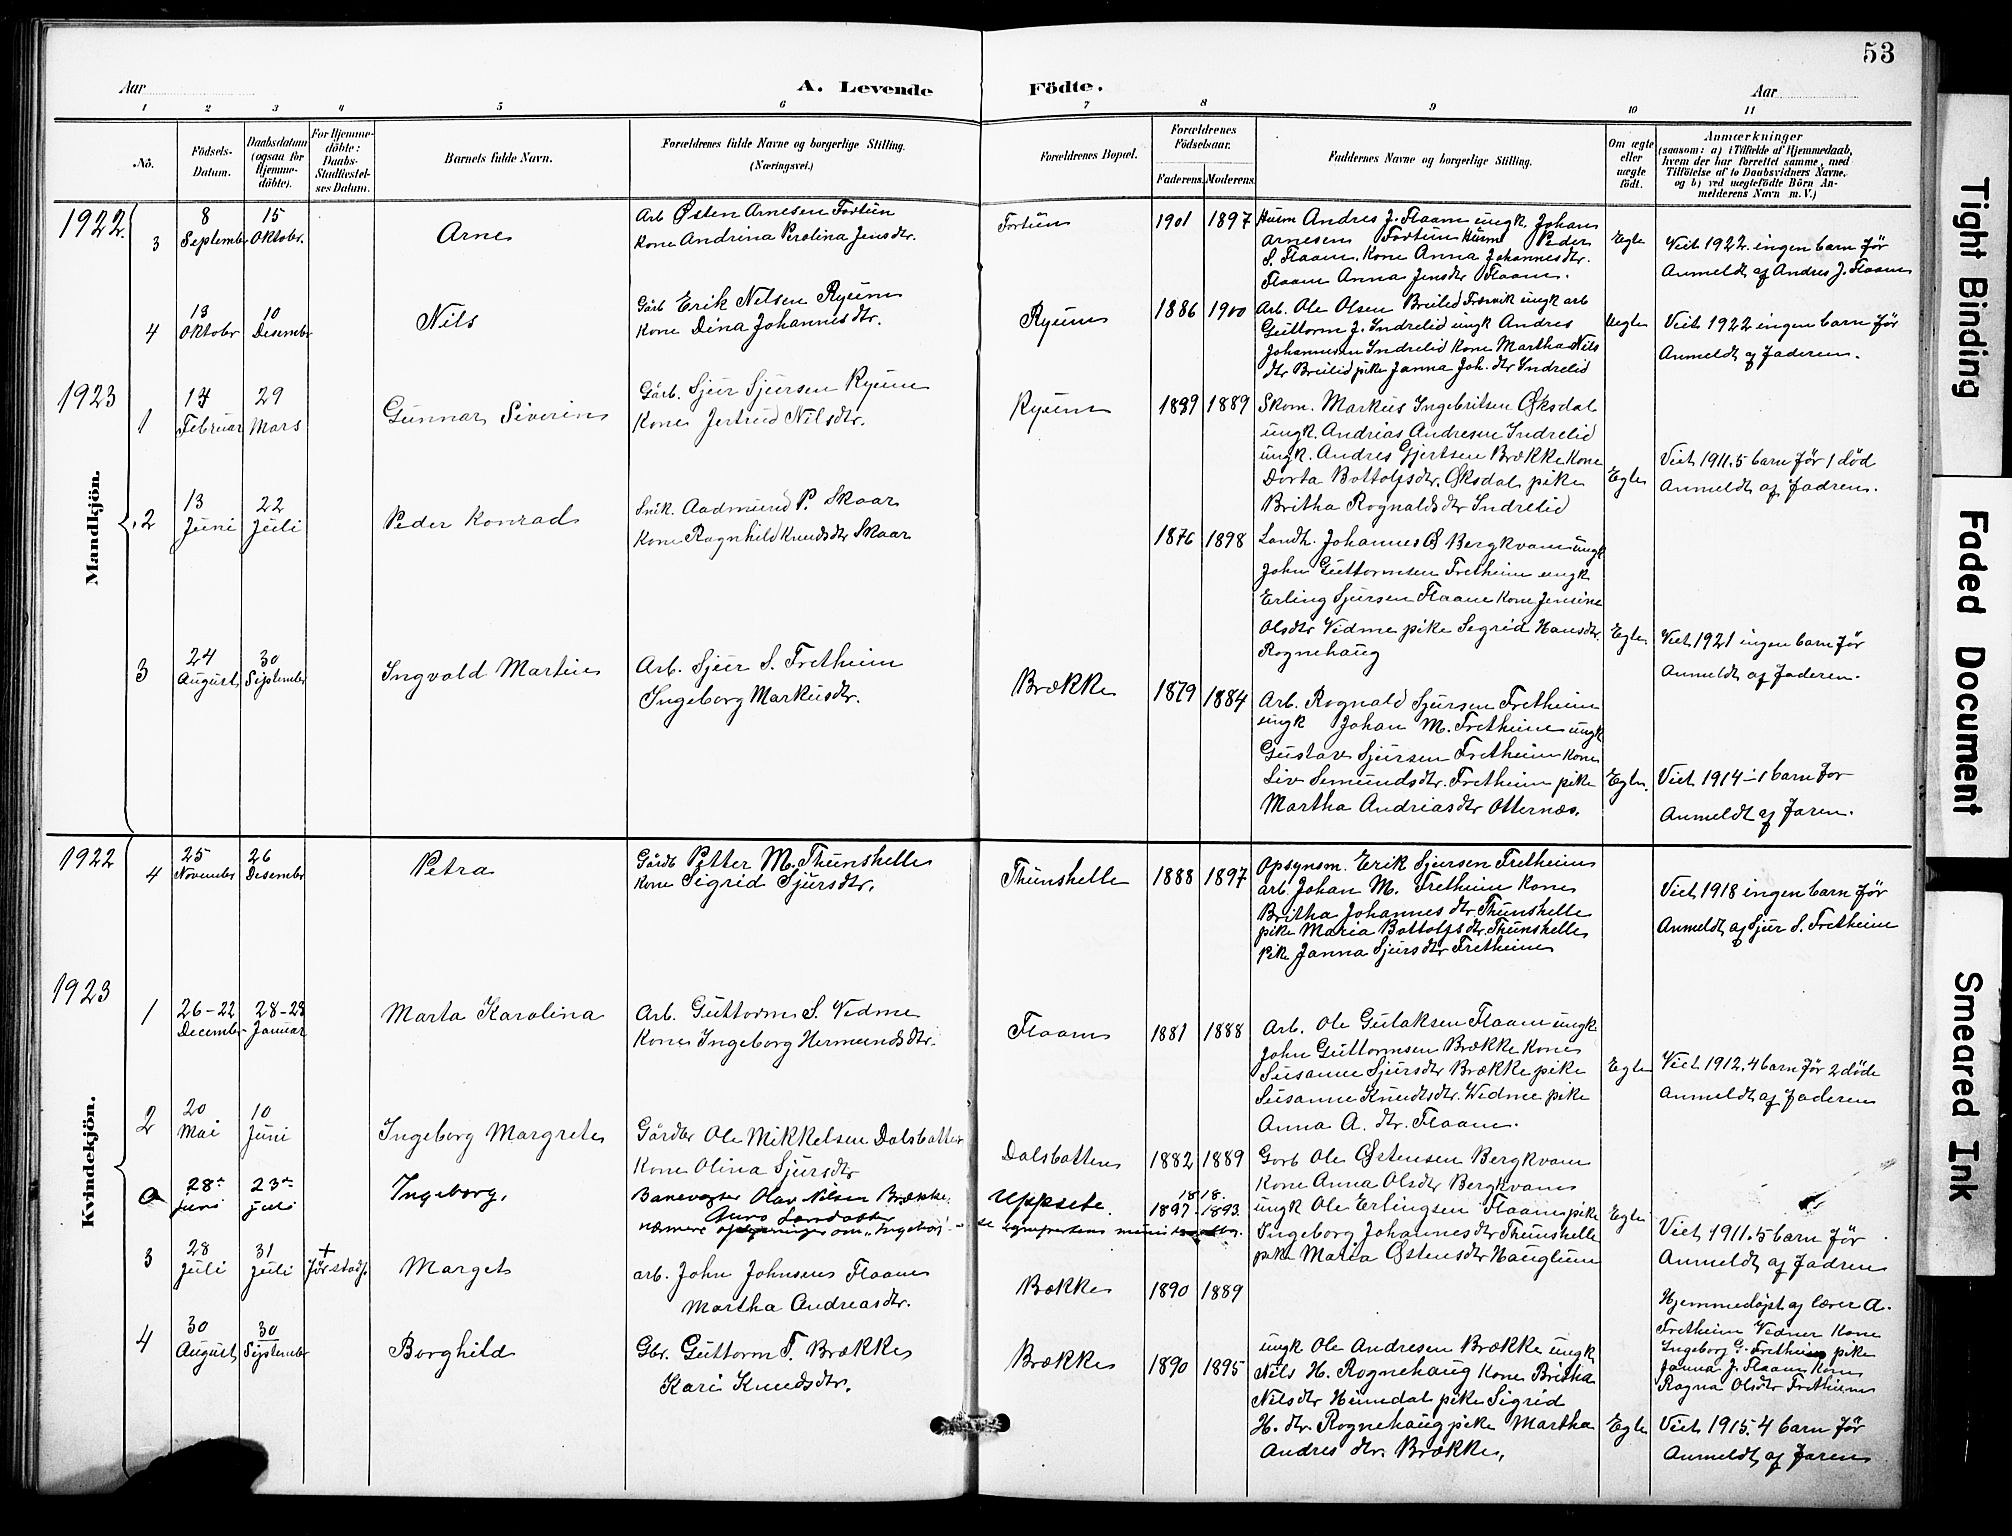 53
Aar
A. Levende Födte.
Aar
1 2 3 4 5 6 7 8 9 10 11
No.
Födsels-
Datum.
Daabsdatum
(ogsaa for
Hjemme-
döbte).
For Hjemme-
döbte:
Daabs-
Stadfæstel-
ses Datum.
Barnets fulde Navn.
Forældrenes fulde Navne og borgerlige Stilling.
(Næringsvei.)
Forældrenes Bopæl.
Forældrenes
Födselsaar.
Faderens. Moderens.
Faddernes Navne og borgerlige Stilling.
Om ægte
eller
uægte
födt.
Anmærkninger
(saasom: a) i Tilfælde af Hjemmedaab,
hvem der har forrettet samme, med
Tilföielse af to Daabsvidners Navne,
og b) ved uægtefödte Börn An-
melderens Navn m. V.)
Mandkjön.
1922.
3
8
September
15
Oktobr.
Arne
Arb Østen Arnesen Fortun
Kone Andrina Perolina Jensdtr.
Fortun
1901 1897
Husm Andres J. Flaam ungk Johan
Arnesen Fortun Husm Peder
S. Flaam. Kone Anna Johannesdtr.
Flaam Anna Jensdtr Flaam.
Egte
Viet 1922 ingen barn før
Anmeldt af Andres J. Flaam
4
13
Oktobr
10
Desember
Nils
Gårb Erik Nelsen Ryum
Kone Dina Johannesdtr.
Ryum
1886 1900
Arb. Ole Olsen Breilid Fresvik ungk arb
Guttorm J. Indrelid ungk Andres
Johannesen Indrelid Kone Martha Nils
dtr Breilid pike Janna Joh. dtr Indrelid
Uegte
Viet 1922 ingen barn før
Anmeldt af faderen.
1923
1
14
Februar
29
Mars
Gunnar Siverin
Gårb. Sjur Sjursen Ryum
Kone Jertrud Nilsdtr.
Ryum
1889 1889
Skom. Markus Ingebritsen Øksdal
ungk. Andrias Andresen Indrelid
ungk. Andres Gjertsen Brække Kone
Dorta Bottolfsdtr. Øksdal pike
Britha Rognaldsdtr Indrelid
Egte
Viet 1911. 5 barn før 1 død
Anmeldt af fadren.
2
13
Juni
22
Juli
Peder Konrad
Snik. Aadmund P. Skaar
Kone Ragnhild Knudsdtr Skaar
1876 1898
Landh. Johannes O Bergkvam ungk
John Guttormsen Fretheim ungk
Erling Sjursen Flaam Kone Jensine
Olsdtr Vidme pike Segrid Hansdtr.
Rognehaug
Egte
Viet 1921 ingen barn før
Anmeldt af faderen.
3
24
August
30
September
Ingvald Martin
Arb. Sjur S. Fretheim
Ingeborg Markusdtr.
Brække
1879 1884
Arb. Rognald Sjursen Fretheim
ungk Johan M. Fretheim ungk
Gustav Sjursen Fretheim Kone
Siv Semundsdtr. Fretheim pike
Martha Andriasdtr Otternæs.
Egte.
Viet 1914 - 1 barn før
Anmeldt af faren.
Kvindekjön.
1922
4
25
November
26
Desember
Petra
Gårdb Petter M. Thunshelle
Kone Sigrid Sjursdtr.
Thunshelle
1888 1897
Opsynsm. Erik Sjursen Fretheim
arb. Johan M. Fretheim Kone
Britha Johannes dtr. Thunshelle
pike Maria Bottolfsdtr. Thunshelle
Pike Janna Sjursdtr Fretheim
Viet 1918 ingen barn før
Anmeldt af Sjur S. Fretheim
1923
1
26-22
December
28-23
Januar
Marta Karolina
Arb. Guttorm S. Vidme
Kone Ingeborg Hermundsdtr.
Flaam
1881 1888
Arb. Ole Gulaksen Flaam ungk
John Guttormsen Brække Kone
Susanne Sjursdtr Brække pike
Susanne Knudtsdtr. Widme pike
Anna A. dtr. Flaam.
Egte
Viet 1912. 4 barn før 2 døde
Anmeldt af faderen
2
20
Mai
10
Juni
Ingeborg Margrete
Gårdbr Ole Mikkelsen Dalsbotten
Kone Olina Sjursdtr
Dalsbotten
1882 1889
Gorb Ole Østensen Bergkvam
Kone Anna Olsdtr Bergkvam
ungk Ole Erlingsen Flaam pike
Ingeborg Johannesdtr Thunshelle
pike Maria Østensdtr Hauglum
Egte
Viet 1911. 5 barn før
Anmeldt af fadren
a
28de
juni
23de
juli
Ingeborg.
Banevogter Olav Nilsen Brække.
nærmere oplysninger om "Ingeborg" -
Uppsete.
18 18.
1897. 1893.
3
28
Juli
31
Juli
+
før stadf.
Marget
arb. John Johnsen Flaam
Martha Andreasdtr.
Bække
1890 1889
Hjemmedøpt af lærer A.
Fretheim Vidner Kone
Ingeborg G. Fretheim pike
Janna J. Flaam Kone
Ragna Olsdtr Fretheim
4
30
August
30
September
Borghild
Gbr. Guttorm T. Brække
Kari Knudsdtr.
Brække
1890 1895
ungk Ole Andresen Brække ungk
Nils H. Rognehaug Kone Britha
Nilsdtr Heimdal pike Sigrid
H. dtr. Rognehaug pike Martha
Andres dtr. Brække.
Egte
Viet 1915. 4 barn før
Anmeldt af faren
Tight Binding
Faded Document
Smeared Ink